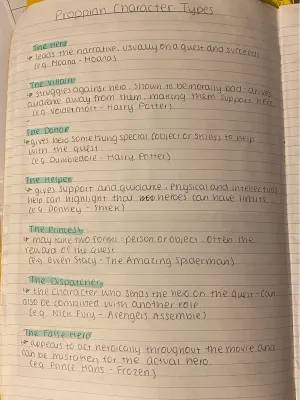 Proppian Character Types
The Hero
→ leads the narrative, usually on a quest and succeeds
(e.g. Moana - Moana)
The Villain
→ struggles against hero, shown to be morally bad - drives
audience away from them, making them support hero
(e.g. Voldermort - Harry Potter)
The Donor
→ gives hero something special (object or skills) to help
with the quest
(e.g. Dumbledore - Harry Potter)
The Helper
→ gives support and guidance. Physical and intellectual
help can highlight that heroes can have limits
(e.g. Donkey - Shrek)
The Princess
→ may take two forms - person or object. Often the
reward of the quest
(e.g. Gwen Stacy - The Amazing Spiderman)
The Dispatcher
→ the character who sends the hero on the quest - can
also be combined with another role
(e.g. Nick Fury - Avengers Assemble)
The False Hero
→ appears to act heroically throughout the movie and
can be mistaken for the actual hero
(e.g. Prince Hans - Frozen)